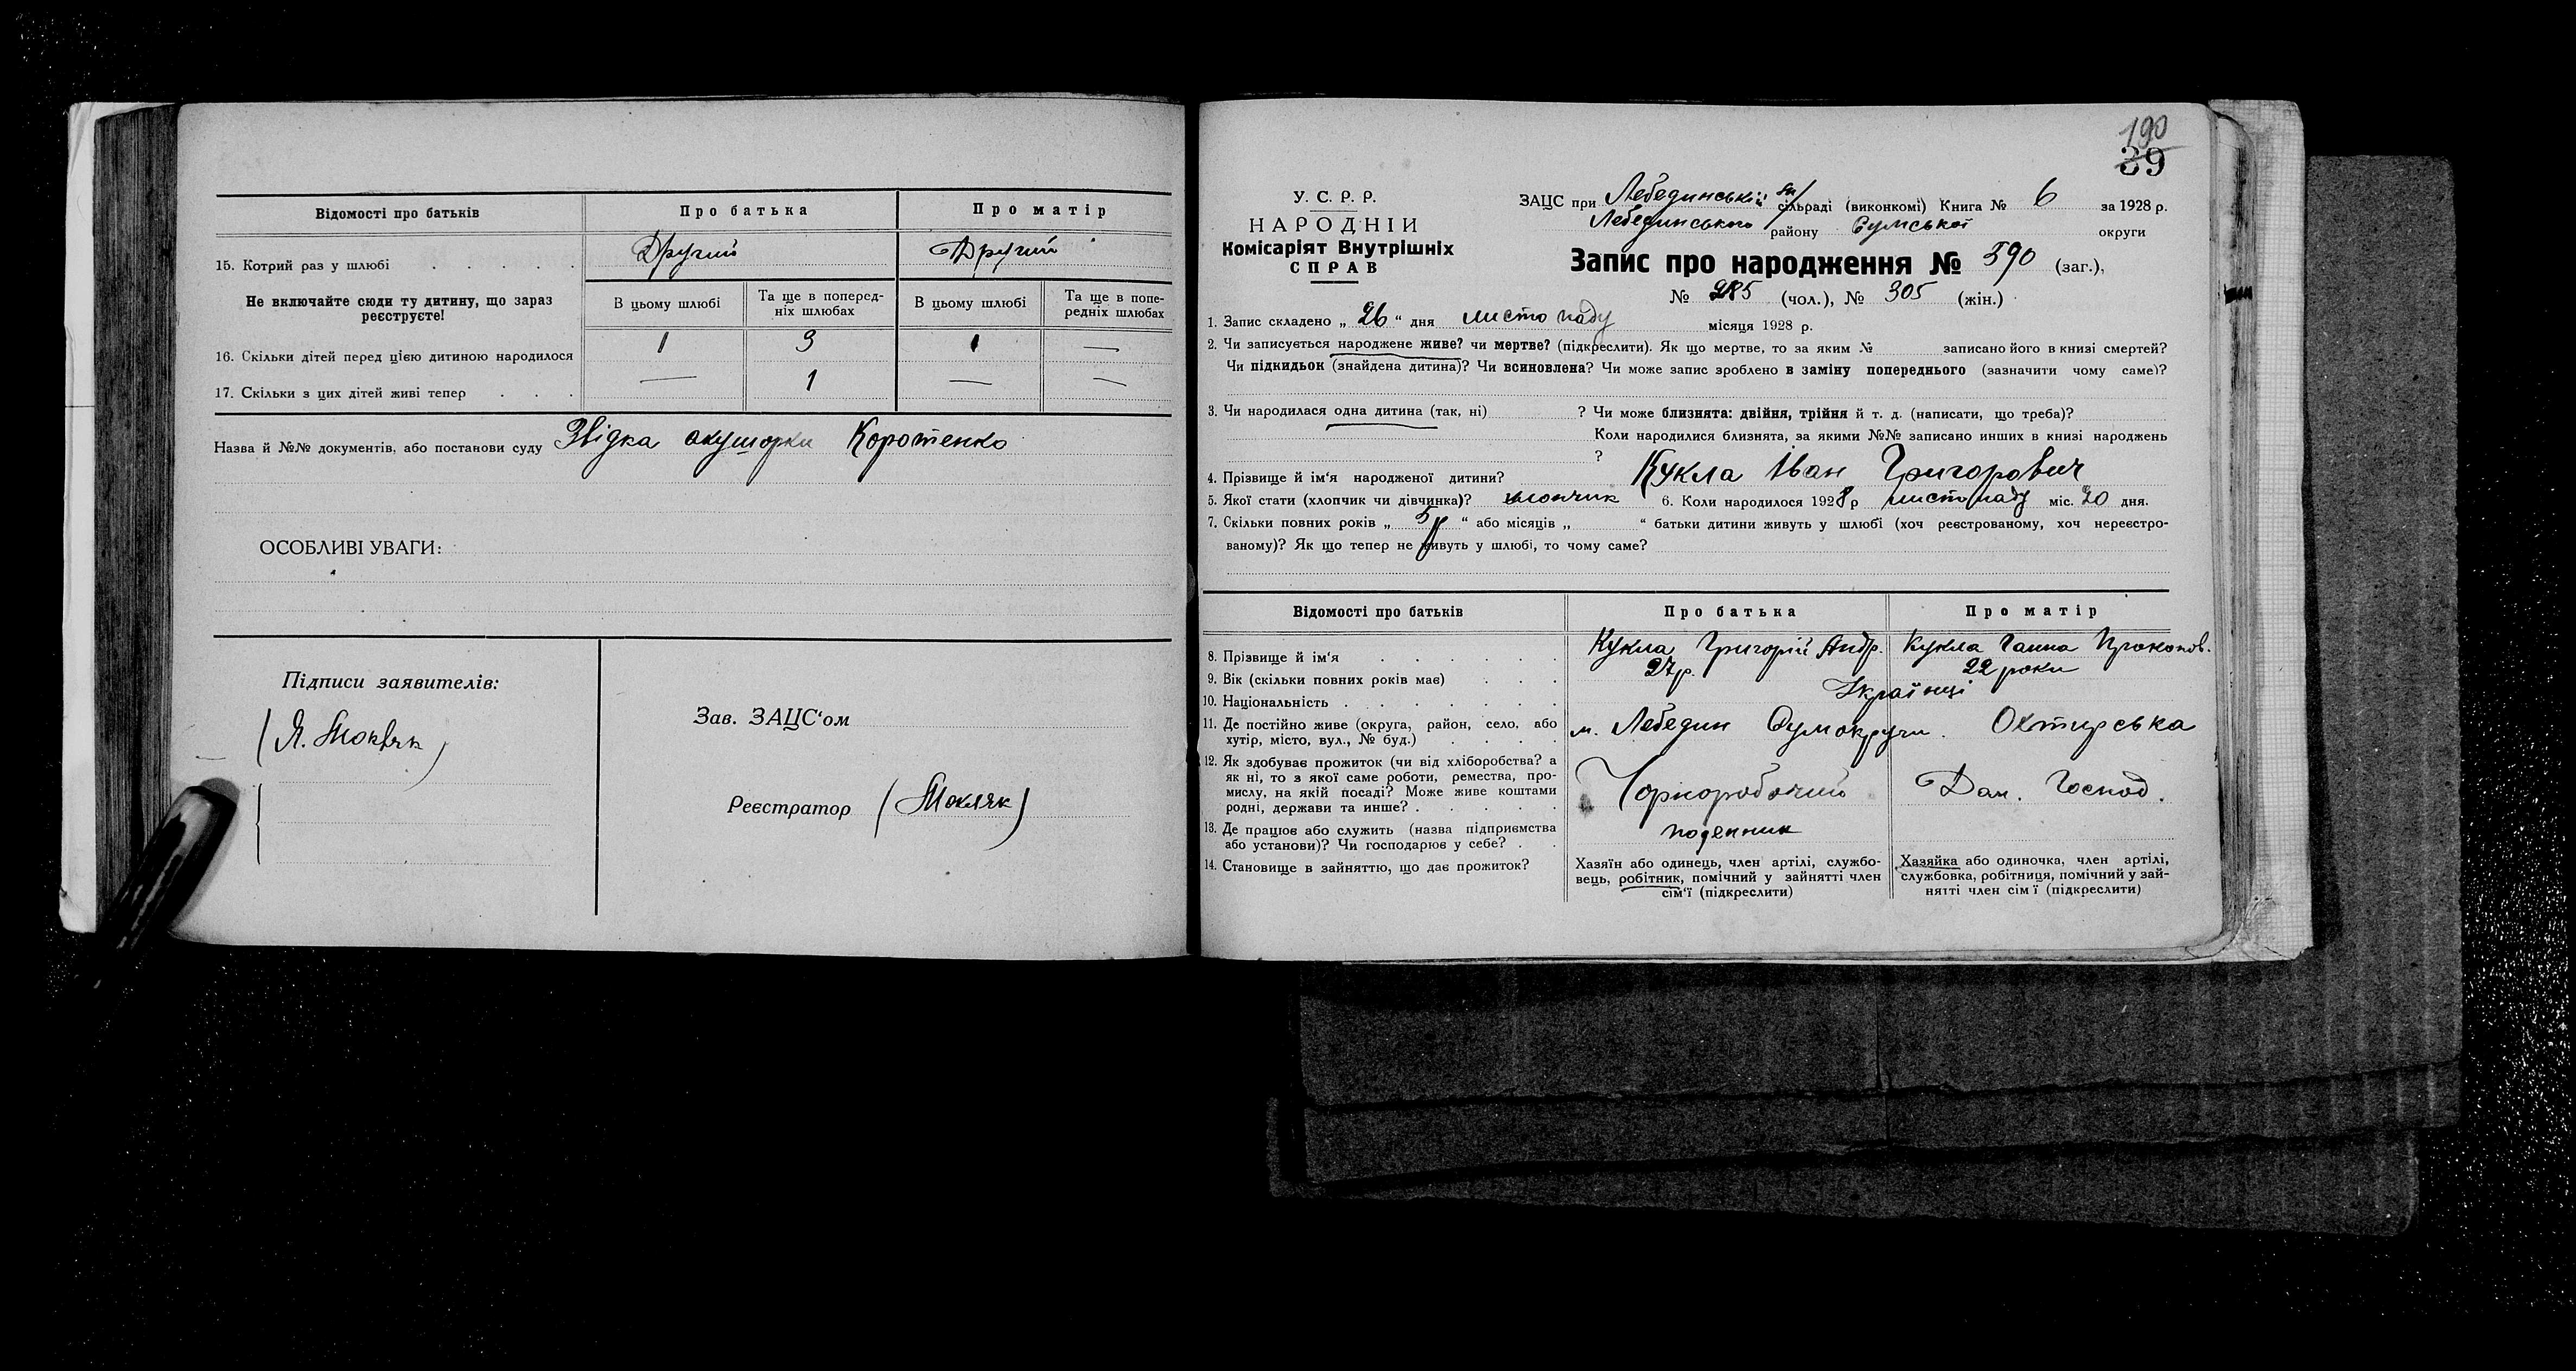 Відомості про батьків
Про батька
Про матір
15. Котрий раз у шлюбі . . . . .
Другий
Другий
Не включайте сюди ту дитину, що зараз реєструєте!
В цьому шлюбі
Та ще в поперед-
ніх шлюбах
В цьому шлюбі
Та ще в попе-
редніх шлюбах
16. Скільки дітей перед цією дитиною народилося
1
3
1
—
17. Скільки з цих дітей живі тепер . . .
—
1
—
—
Назва й №№ документів, або постанови суду Звідка акушорки Коротенко
ОСОБЛИВІ УВАГИ:
Підписи заявителів:
(Я. Мокляк)
Зав. ЗАЦС'ом
Реєстратор (Мокляк)
190
39
У. С. Р. Р.
НАРОДНІЙ
Комісаріят Внутрішніх
СПРАВ
ЗАЦС при Лебединській сільраді (виконкомі) Книга № 6 за 1928 р.
Лебединського району Сумської округи
Запис про народження № 590 (заг.),
№ 285 (чол.), № 305 (жін.)
1. Запис складено „ 26 “ дня листопаду місяця 1928 р.
2. Чи записується народжене живе? чи мертве? (підкреслити). Як що мертве, то за яким № записано його в книзі смертей?
Чи підкидьок (знайдена дитина)? Чи всиновлена? Чи може запис зроблено в заміну попереднього (зазначити чому саме)?
3. Чи народилася одна дитина (так, ні) ? Чи може близнята: двійня, трійня й т. д. (написати, що треба)?
Коли народилися близнята, за якими №№ записано инших в книзі народжень
?
4. Прізвище й ім'я народженої дитини? Кукла Іван Григорович
5. Якої стати (хлопчик чи дівчинка)? хлопчик 6. Коли народилося 1928 р листопаду міс. 20 дня.
7. Скільки повних років „ 5р “ або місяців „ “ батьки дитини живуть у шлюбі (хоч реєстрованому, хоч нереєстро-
ваному)? Як що тепер не живуть у шлюбі, то чому саме?
Відомості про батьків
Про батька
Про матір
8. Прізвище й ім'я . . . . . .
Кукла Григорій Андр.
Кукла Ганна Прокопов.
9. Вік (скільки повних років має) . . .
27 р.
22 роки
10. Національність . . . . . . .
Українці
11. Де постійно живе (округа, район, село, або
хутір, місто, вул., № буд.) . . . .
м. Лебедин Сумокруги. Охтирська
12. Як здобуває прожиток (чи від хліборобства? а
як ні, то з якої саме роботи, ремества, про-
мислу, на якій посаді? Може живе коштами
родні, держави та инше? . . . . .
Чорноробочий
Дом. Господ.
13. Де працює або служить (назва підприємства
або установи)? Чи господарює у себе? . .
поденник
14. Становище в зайняттю, що дає прожиток?
Хазяїн або одинець, член артілі, службо-
вець, робітник, помічний у зайнятті член
сім'ї (підкреслити)
Хазяйка або одиночка, член артілі,
службовка, робітниця, помічний у зай-
нятті член сім ї (підкреслити)